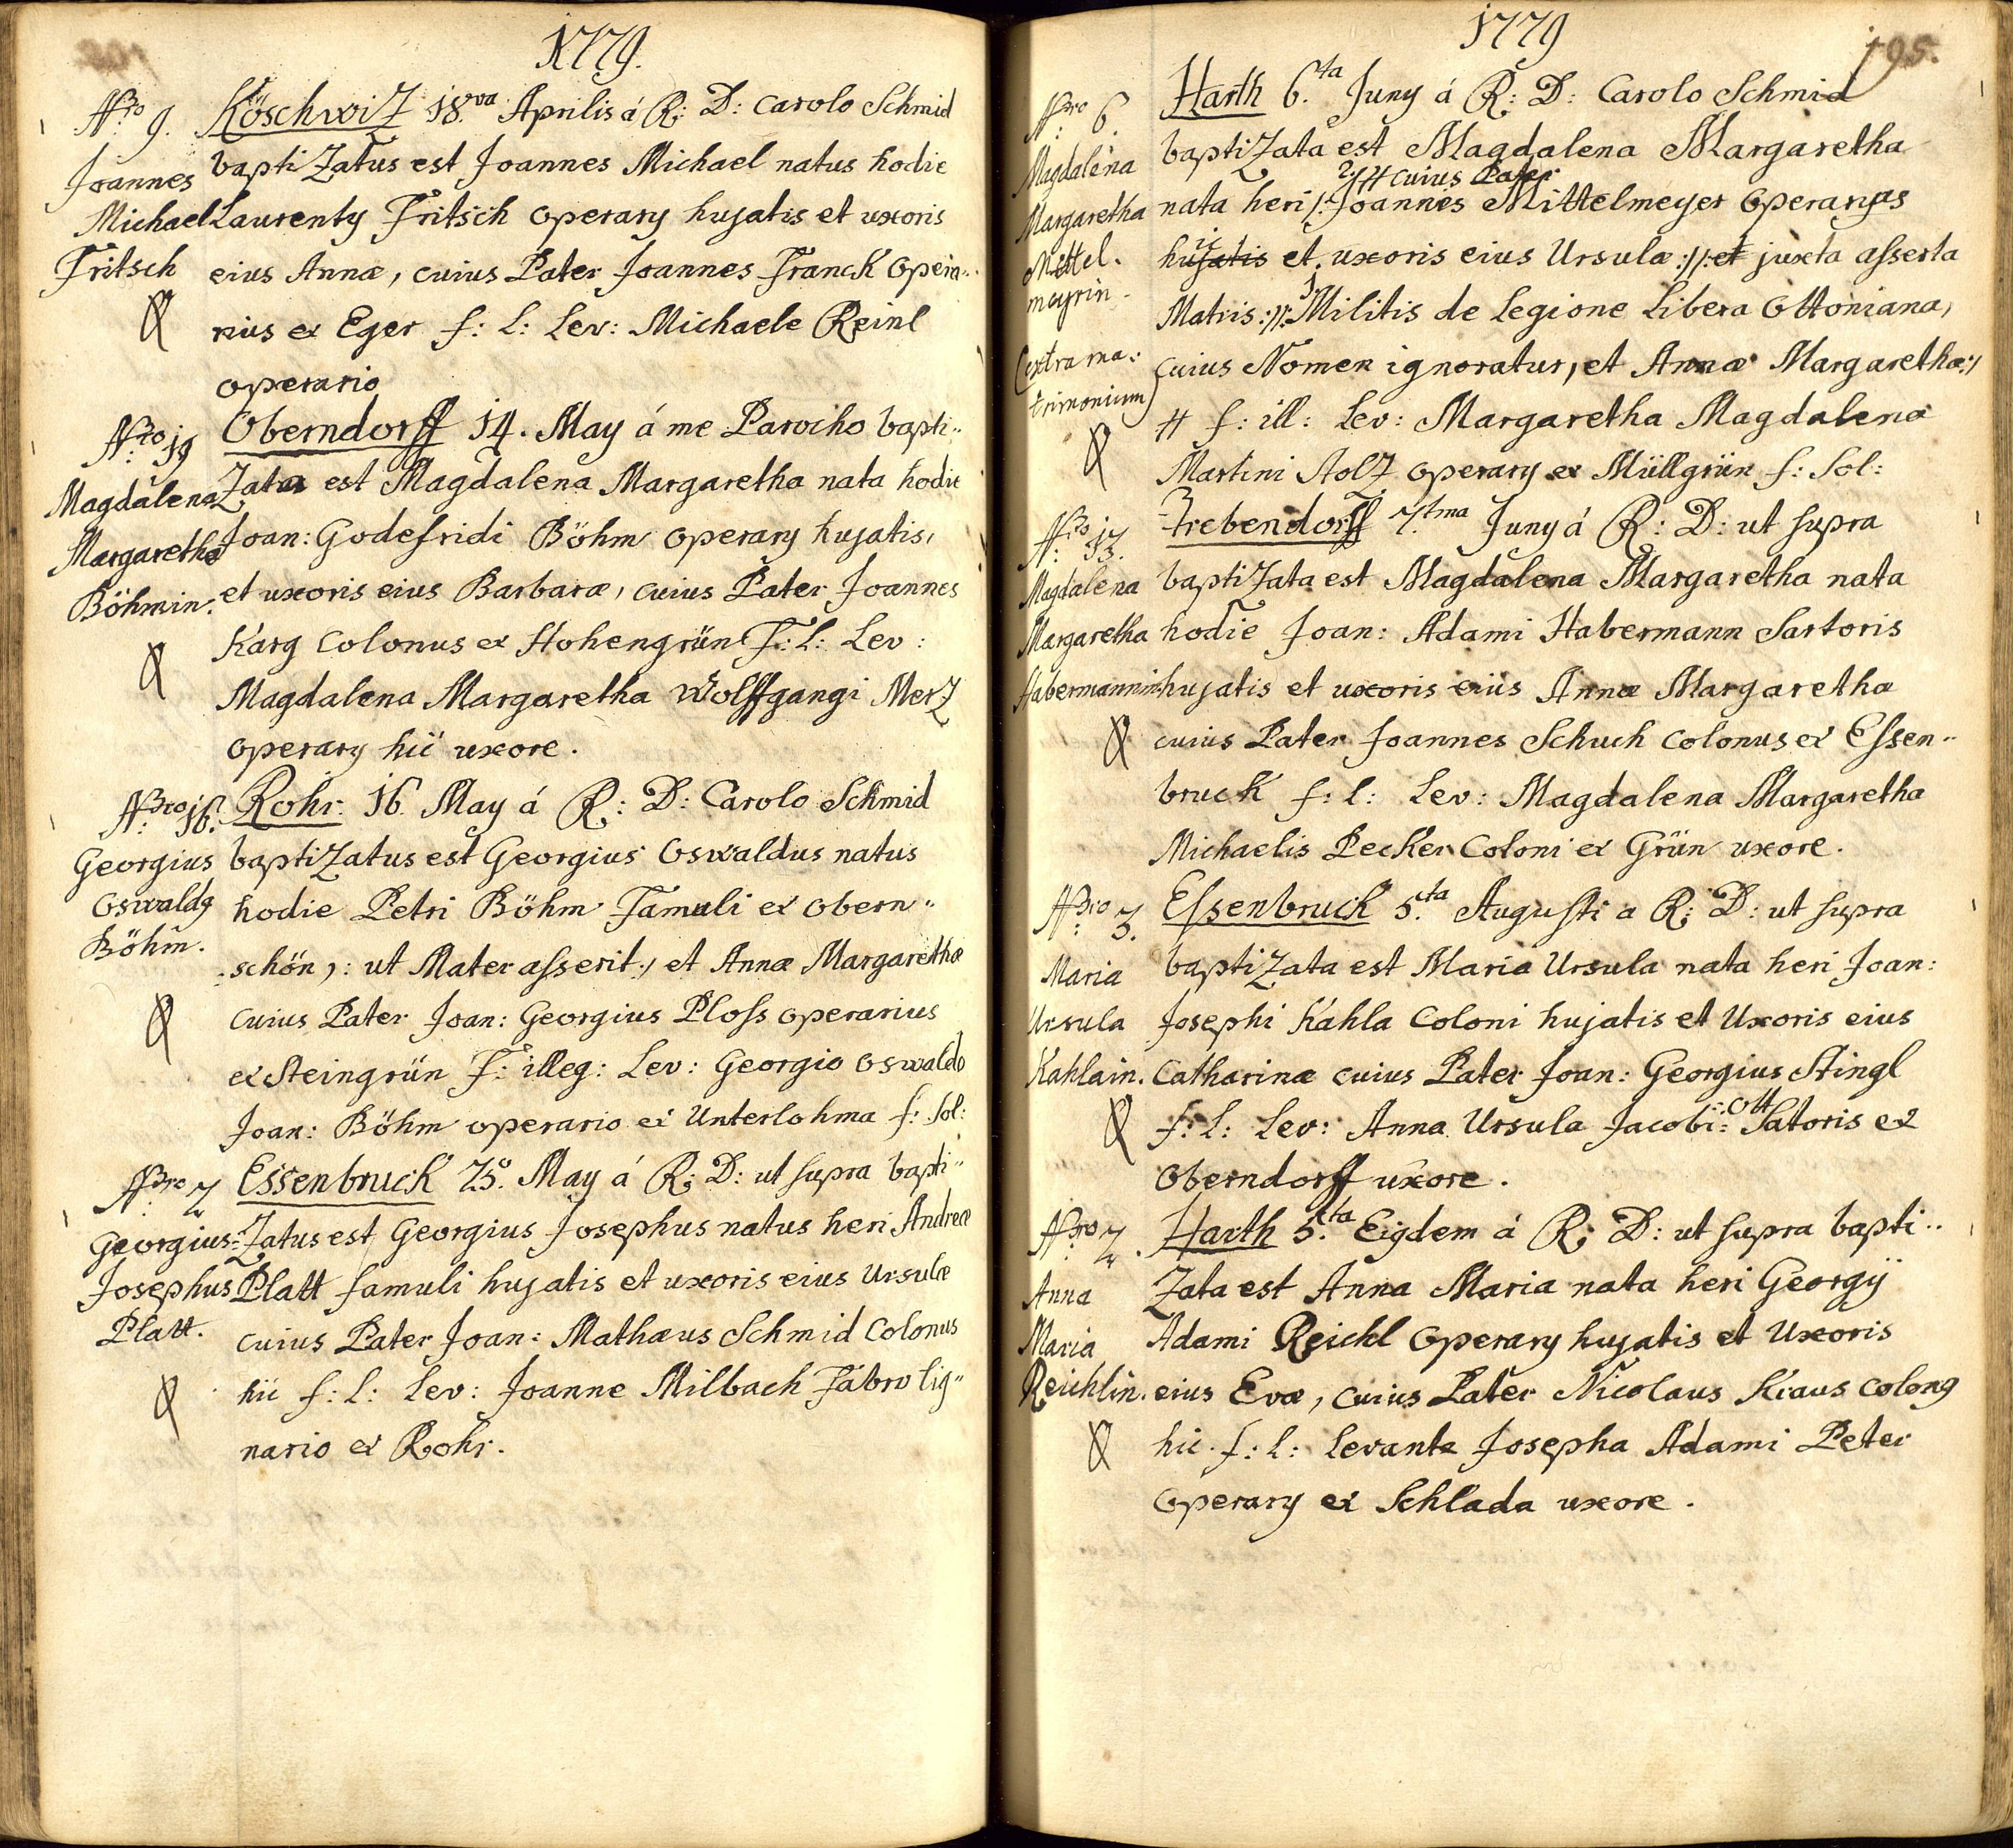 1779.
Nro 9. Köschwitz 18.va Aprilis á R: D: Carolo Schmid
Joannes baptiZatus est Joannes Michael natus hodie
Michael Laurenty Fritsch operary hujatis et uxoris
Fritsch eius Annæ, cuius Pater Joannes Franck opera..
rius ex Eger f: l: Lev: Michaele Reinl
operario
Nro 19 Oberndorff 14. May á me Parocho bapti..
Magdalena Zata est Magdalena Margaretha nata hodie
Margaretha Joan: Godefridi Böhm operary hujatis,
Böhmin. et uxoris eius Barbaræ, cuius Pater Joannes
Karg Colonus ex Hohengrün F: l: Lev:
Magdalena Margaretha Wolffgangi Merz
operary hic uxore.
Nro 16. Rohr. 16. May á R: D: Carolo Schmid
Georgius baptiZatus est Georgius Oswaldus natus
Oswaldg hodie Petri Böhm Famuli ex Obern..
Böhm. schön ,: ut Mater asserit:, et Annæ Margarethæ
cuius Pater Joan: Georgius Ploss operarius
ex Steingrün F: illeg: Lev: Georgio Oswaldo
Joan: Böhm operario ex Unterlohma f: sol:
Nro 2 Essenbruck 25. May á R: D: ut supra bapti..
Georgius Zatus est Georgius Josephus natus heri Andreæ
Josephus Platt famuli hujatis et uxoris eius Ursulæ
Platt. cuius Pater Joan: Mathæus Schmid Colonus
hic f: l: Lev: Joanne Milbach Fabro lig..
nario ex Rohr.
1779
195.
Nro 6. Harth 6.ta Juny á R: D: Carolo Schmid
Magdalena baptiZata est Magdalena Margaretha
cuius Pater
Margaretha nata heri Joannes Mittelmeyer operarius
Mittel. hujatis et uxoris eius Ursulæ :/: et juxta asserta
meyrin. Matris :/: Militis de Legione Libera Ottoniana,
(extra ma: cuius Nomen ignoratur, et Annæ Margarethæ:/
trimonium) # f: ill: Lev: Margaretha Magdalena
Martini Stolz operary ex Müllgrün f: sol:
Nro 13. Trebendorff 7.tma Juny á R: D: ut supra
Magdalena baptiZata est Magdalena Margaretha nata
Margaretha hodie Joan: Adami Habermann Sartoris
Habermannin hujatis et uxoris eius Annæ Margaretha
cuius Pater Joannes Schuch Colonus ex Essen..
bruck f: l: Lev: Magdalena Margaretha
Michaelis Pecker Coloni ex Grün uxore.
Nro 3. Essenbruck 5.ta Augusti a R: D: ut supra
Maria baptiZata est Maria Ursula nata heri Joan:
Ursula Josephi Kahla Coloni hujatis et Uxoris eius
Kahlain. Catharinæ cuius Pater Joan: Georgius Stingl
f: l: Lev: Anna Ursula Jacobi Ott Satoris ex
Oberndorff uxore.
Nro 2. Harth 5.ta Eigdem á R: D: ut supra bapti..
Anna Zata est Anna Maria nata heri Georgÿ
Maria Adami Reichl operary hujatis et Uxoris
Reichlin. eius Evæ, cuius Pater Nicolaus Kraus Colong
hic. f: l: Levante Josepha Adami Peter
operary ex Schlada uxore.